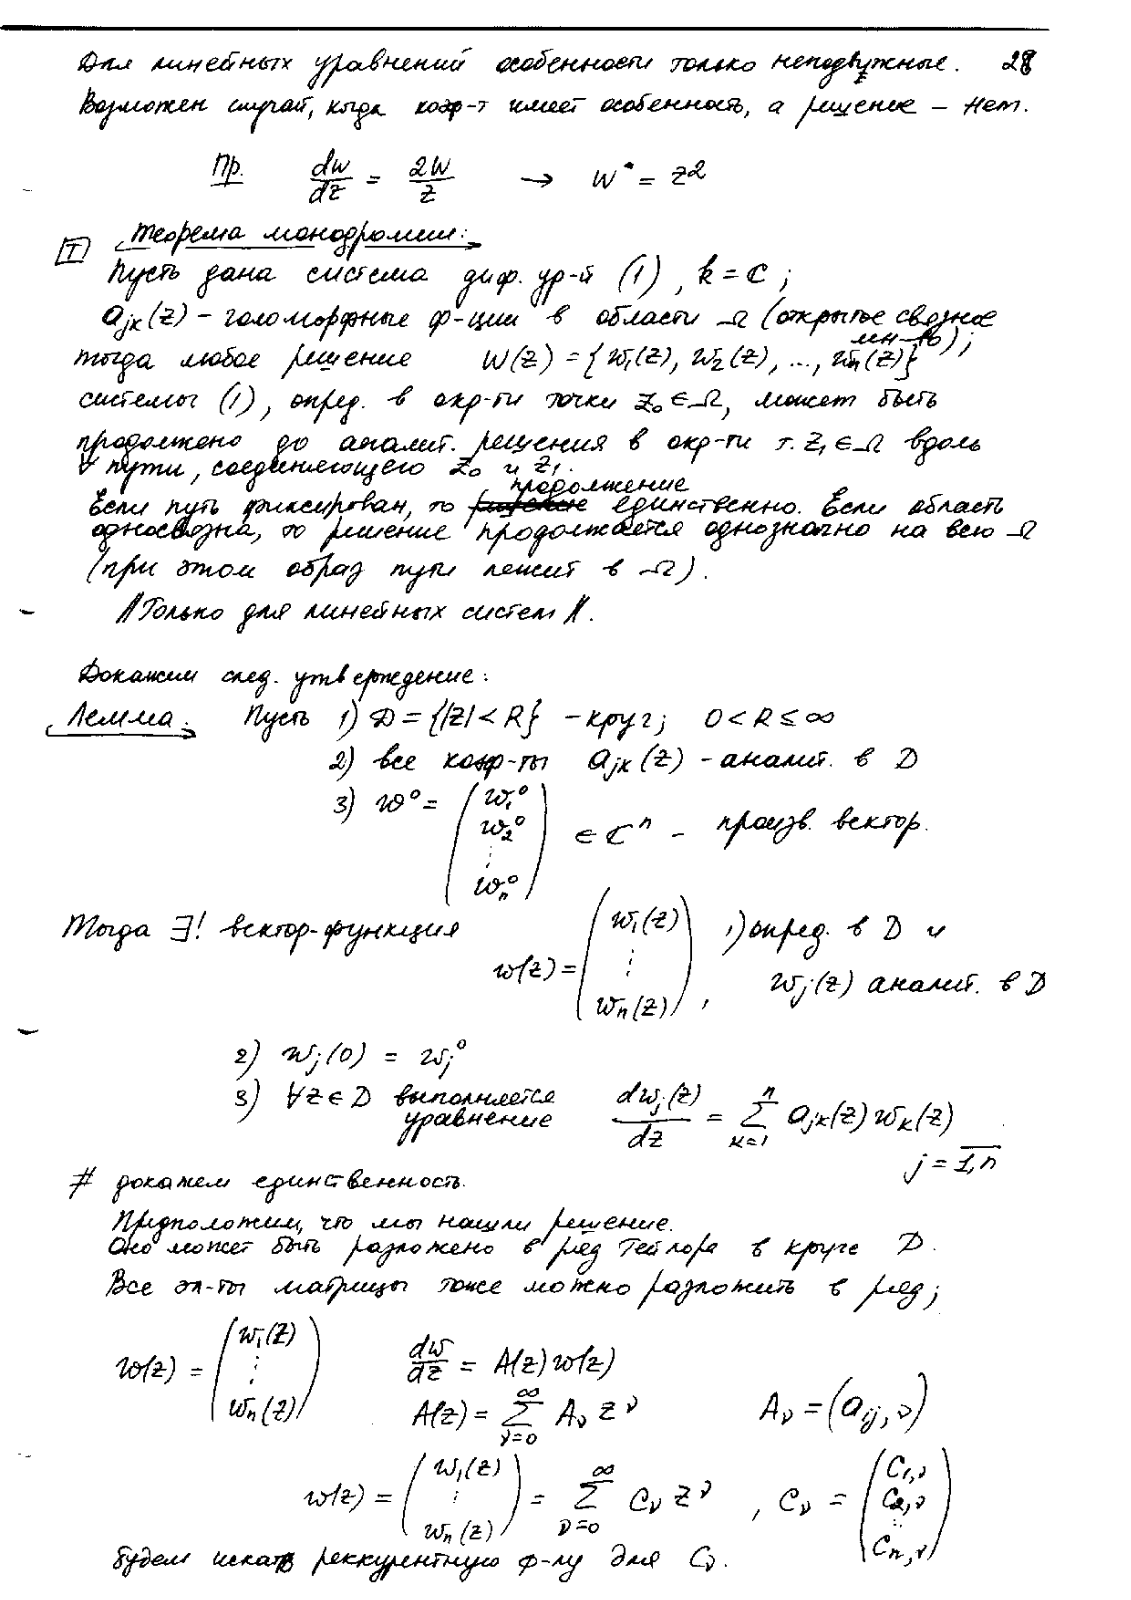 Для линейных уравнений особенности только неподвижные. 28
Возможен случай, когда коэф-т имеет особенность, а решение – нет.
Пр. dw/dz = 2w/z → w = z²
[T] Теорема монодромии:
Пусть дана система диф. ур-й (1), k = ℂ;
a_jk(z) – голоморфные ф-ции в области Ω (открытое связное мн-во);
тогда любое решение W(z) = {w₁(z), w₂(z), ..., wₙ(z)}
системы (1), опред. в окр-ти точки z₀ ∈ Ω, может быть
продолжено до аналит. решения в окр-ти т. z₁ ∈ Ω вдоль
∀ пути, соединяющего z₀ и z₁.
Если путь фиксирован, то продолжение единственно. Если область
односвязна, то решение продолжается однозначно на всю Ω
(при этом образ пути лежит в Ω).
// Только для линейных систем //.
Докажем след. утверждение:
Лемма. Пусть 1) D = {|z| < R} – круг; 0 < R ≤ ∞
2) все коэф-ты a_jk(z) – аналит. в D
3) w⁰ = (w₁⁰ w₂⁰ ⋮ wₙ⁰) ∈ ℂⁿ – произв. вектор.
Тогда ∃! вектор-функция w(z) = (w₁(z) ⋮ wₙ(z)), 1) опред. в D и
w_j(z) аналит. в D
2) w_j(0) = w_j⁰
3) ∀z ∈ D выполняется уравнение dw_j(z)/dz = Σ_{k=1}^{n} a_jk(z) w_k(z)
j = 1,n
# докажем единственность.
Предположим, что мы нашли решение.
Оно может быть разложено в ряд Тейлора в круге D.
Все эл-ты матрицы тоже можно разложить в ряд;
w(z) = (w₁(z) ⋮ wₙ(z)) dw/dz = A(z)w(z)
A(z) = Σ_{ν=0}^{∞} A_ν z^ν A_ν = (a_{ij,ν})
w(z) = (w₁(z) ⋮ wₙ(z)) = Σ_{ν=0}^{∞} C_ν z^ν, C_ν = (C_{1,ν} C_{2,ν} ⋮ C_{n,ν})
будем искать реккурентную ф-лу для C_ν.